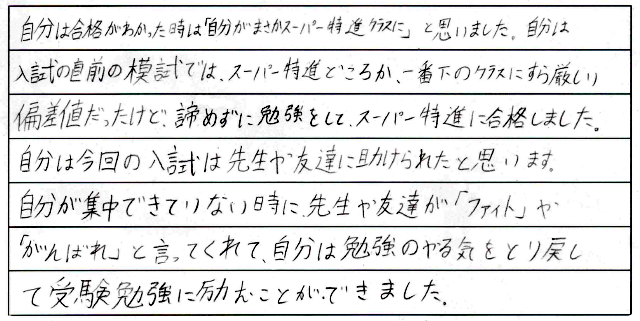 自分は合格がわかった時は「自分がまさかスーパー特進クラスに」と思いました。自分は
入試の直前の模試では、スーパー特進どころか、一番下のクラスにすら厳しい
偏差値だったけど、諦めずに勉強をして、スーパー特進に合格しました。
自分は今回の入試は先生や友達に助けられたと思います。
自分が集中できていない時に、先生や友達が「ファイト」や
「がんばれ」と言ってくれて、自分は勉強のやる気をとり戻し
て受験勉強に励むことができました。